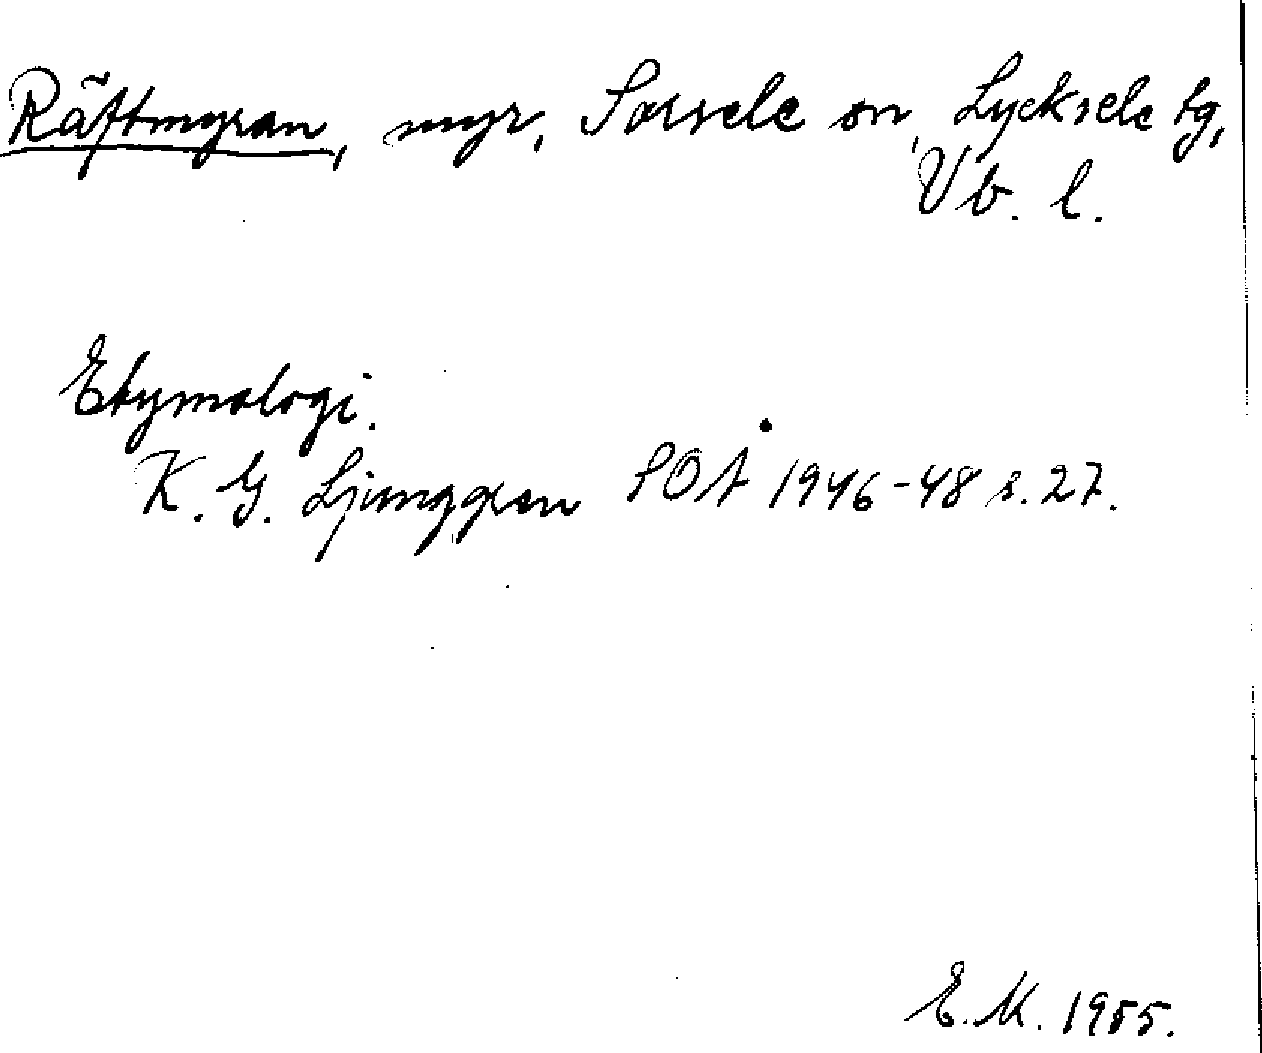 Räftmyran, myr, Sorsele sn, Lycksele tg,
Vb. l.
Etymologi.
K. G. Ljunggren SOÅ 1946-48 s. 27.
E. M. 1955.